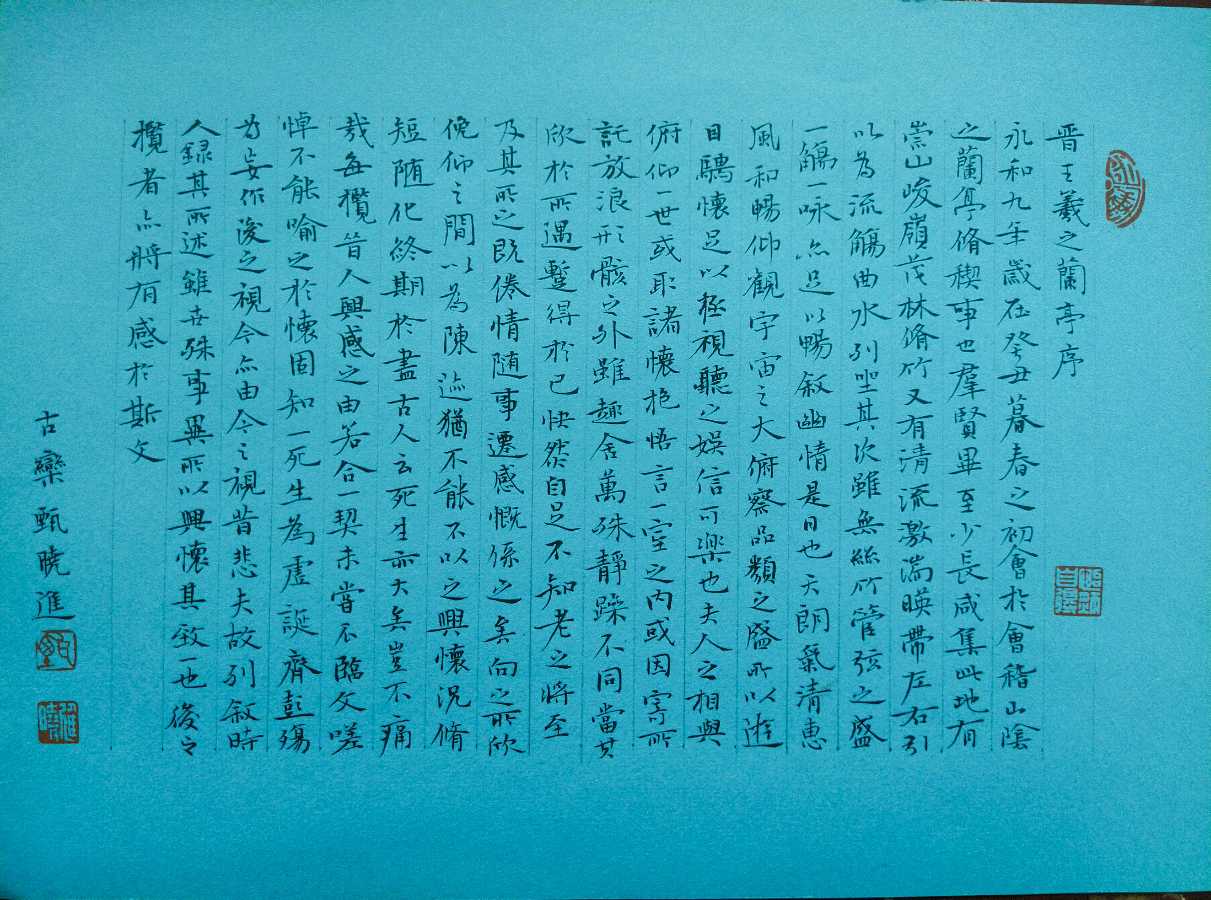 晋王羲之蘭亭序
永和九年歲在癸丑暮春之初會於會稽山陰
之蘭亭脩稧事也羣賢畢至少長咸集此地有
崇山峻嶺茂林脩竹又有清流激湍暎帶左右引
以為流觴曲水列坐其次雖無絲竹管弦之盛
一觴一咏亦足以暢敘幽情是日也天朗氣清惠
風和暢仰觀宇宙之大俯察品類之盛所以遊
目騁懷足以極視聽之娛信可樂也夫人之相與
俯仰一世或取諸懷抱悟言一室之內或因寄所
託放浪形骸之外雖趣舍萬殊靜躁不同當其
欣於所遇蹔得於己快然自足不知老之將至
及其所之既倦情隨事遷感慨係之矣向之所欣
俛仰之間以為陳迹猶不能不以之興懷況脩
短隨化終期於盡古人云死生亦大矣豈不痛
哉每攬昔人興感之由若合一契未嘗不臨文嗟
悼不能喻之於懷固知一死生為虛誕齊彭殤
為妄作後之視今亦由今之視昔悲夫故列敘時
人錄其所述雖世殊事異所以興懷其致一也後之
攬者亦將有感於斯文
古欒甄曉進